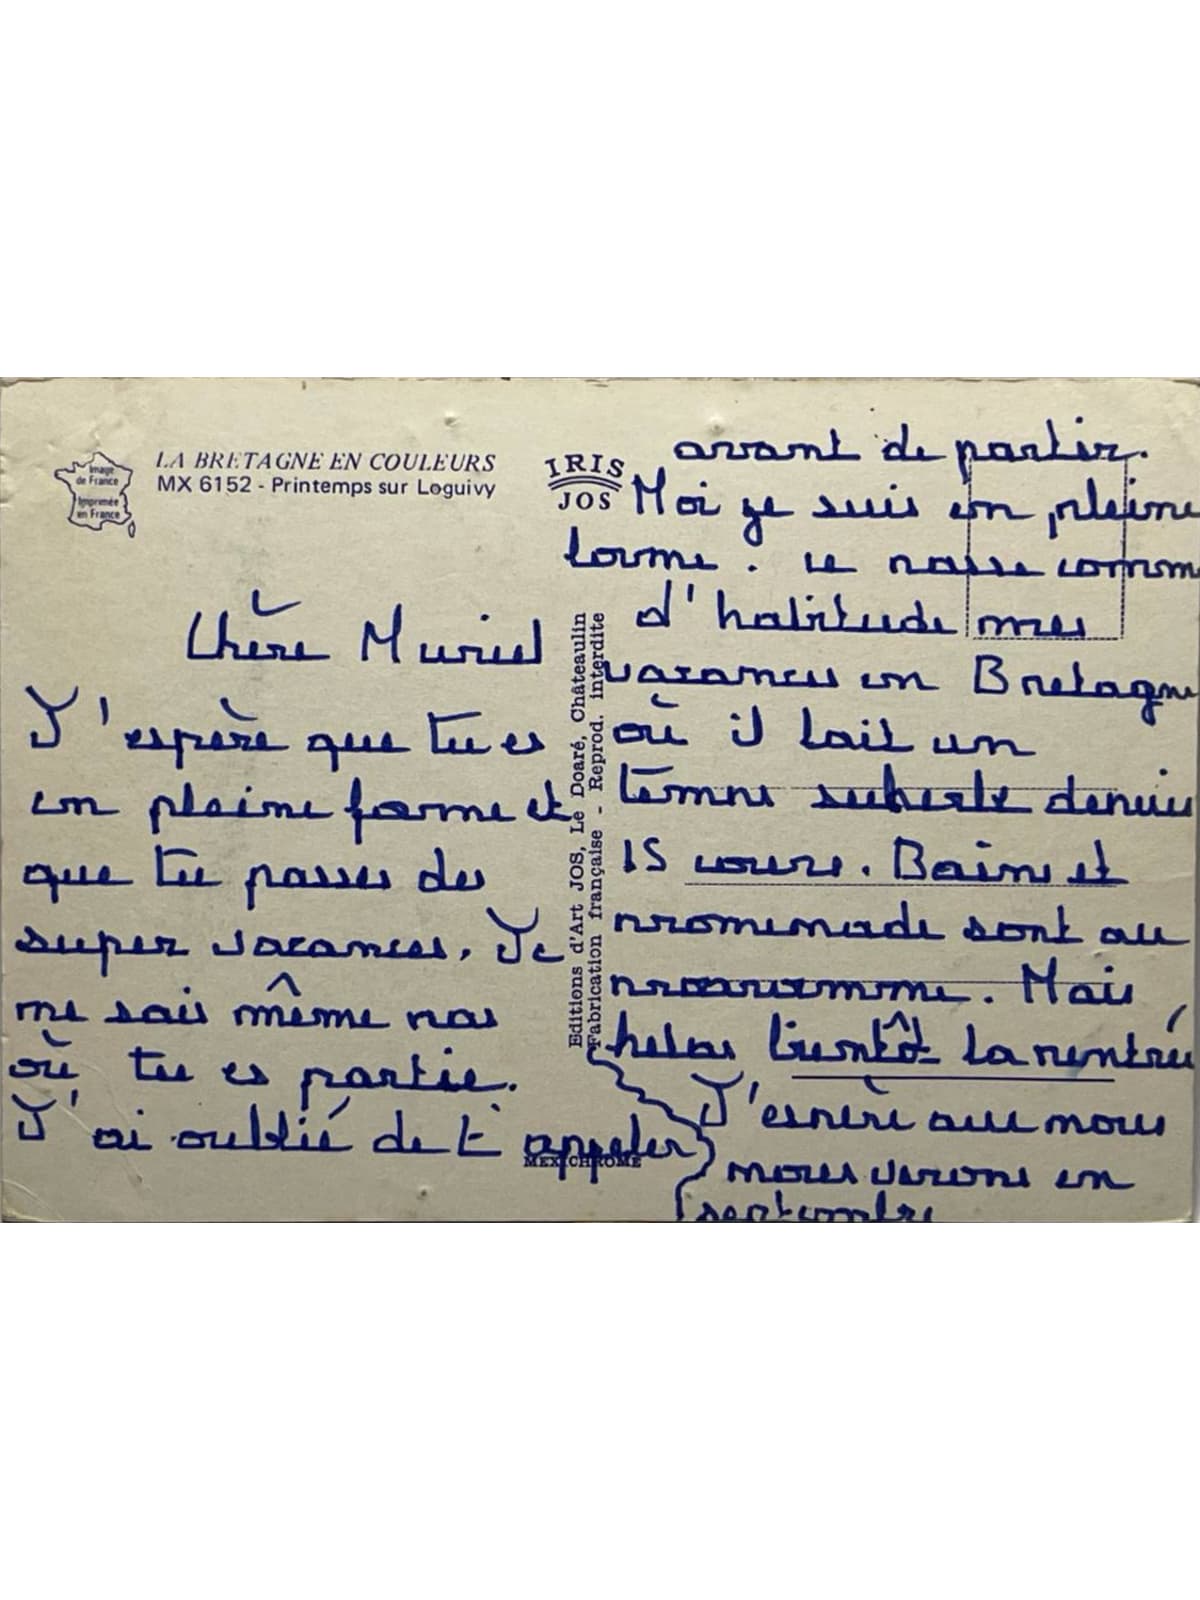 Image
de France
Imprimée
en France
LA BRETAGNE EN COULEURS
MX 6152 - Printemps sur Loguivy
IRIS
JOS
Chère Muriel
J'espère que tu es
en pleine forme et
que tu passes des
super vacances. Je
ne sais même pas
où tu es partie.
J'ai oublié de t'appeler
Editions d'Art JOS, Le Doaré, Châteaulin
Fabrication française - Reprod. interdite
MEXICHROME
avant de partir.
Moi je suis en pleine
forme. Je passe comme
d'habitude mes
vacances en Bretagne
où il fait un
temps superbe depuis
15 jours. Bains et
promenade sont au
programme. Mais,
helas bientôt la rentrée
J'espère que nous
nous verons en
septembre